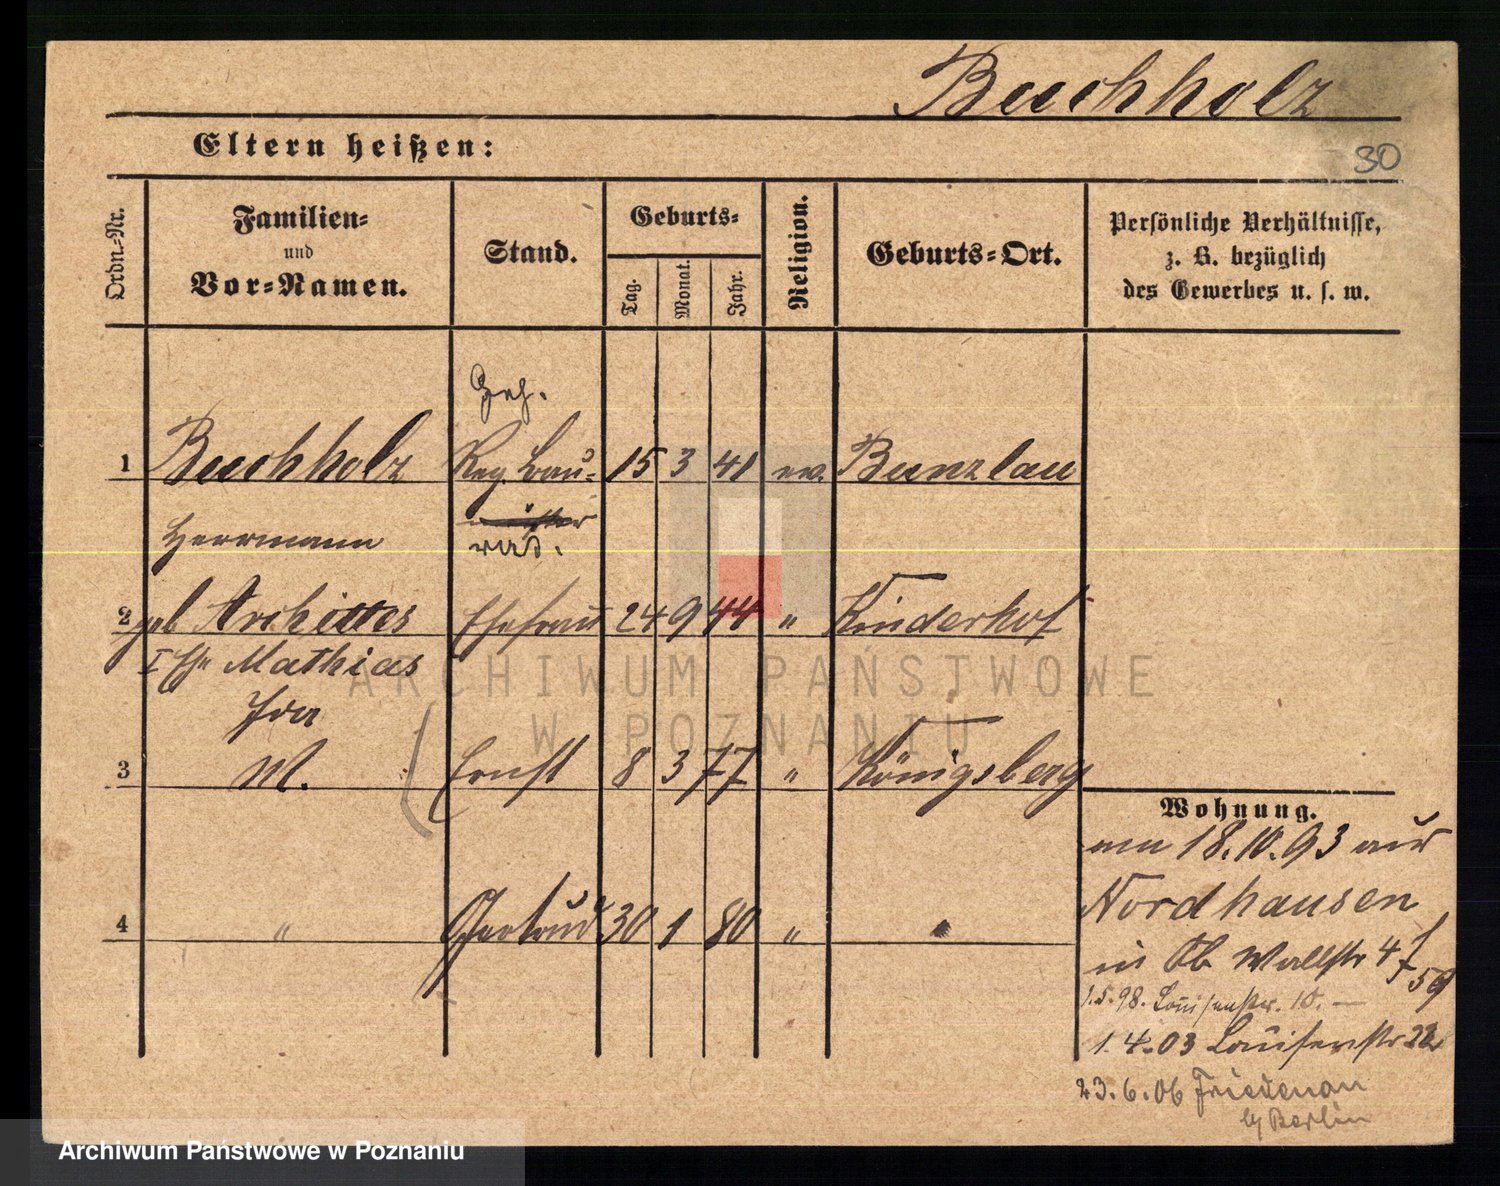 Buchholz
Eltern heißen:
30
Ordn.-Nr.
Familien-
und
Vor-Namen.
Stand.
Geburts-
Tag.
Monat.
Jahr.
Religion.
Geburts-Ort.
Persönliche Verhältnisse,
z. B. bezüglich
des Gewerbes u. s. w.
Geh.
1 Buchholz Reg. Bau- 15 3 41 ev. Bunzlau
Herrmann
rat.
2 geb Architttes Ehefrau 24 9 44 " Kinderhof
I Ehe Mathias
Ida
3 M. Ernst 8 3 77 " Königsberg
4 " Gertrud 30 1 80 " "
Wohnung.
am 18.10.93 aus
Nordhausen
in Ob Wallstr 4
59
1.5.98. Louisenstr. 10. —
1.4.03 Louisenstr 22
23.6.06 Friedenau
b/ Berlin
ARCHIWUM PAŃSTWOWE
W POZNANIU
Archiwum Państwowe w Poznaniu